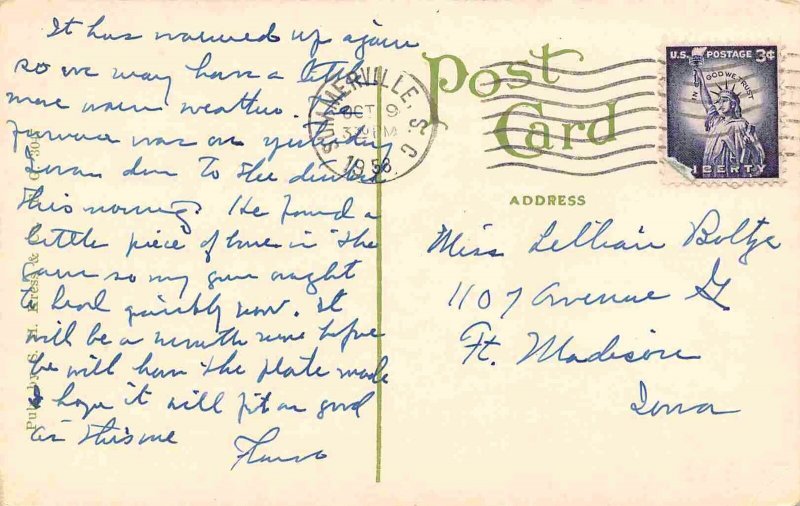 It has warmed up again
so we may have a little
more warm weather. The
furnace was on yesterday
I was down to the dentist
this morning. He found a
little piece of bone in the
gum so my gum ought
to heal quickly now. It
will be a month more before
he will have the plate made
I hope it will fit as good
as this one
Pub. by S. H. Kress & Co.
SUMMERVILLE, S. C.
OCT 9
3 PM
1958
Post
Card
U.S. POSTAGE 3¢
IN GOD WE TRUST
LIBERTY
ADDRESS
Miss Lillian Boltze
1107 Avenue G
Ft. Madison
Iowa